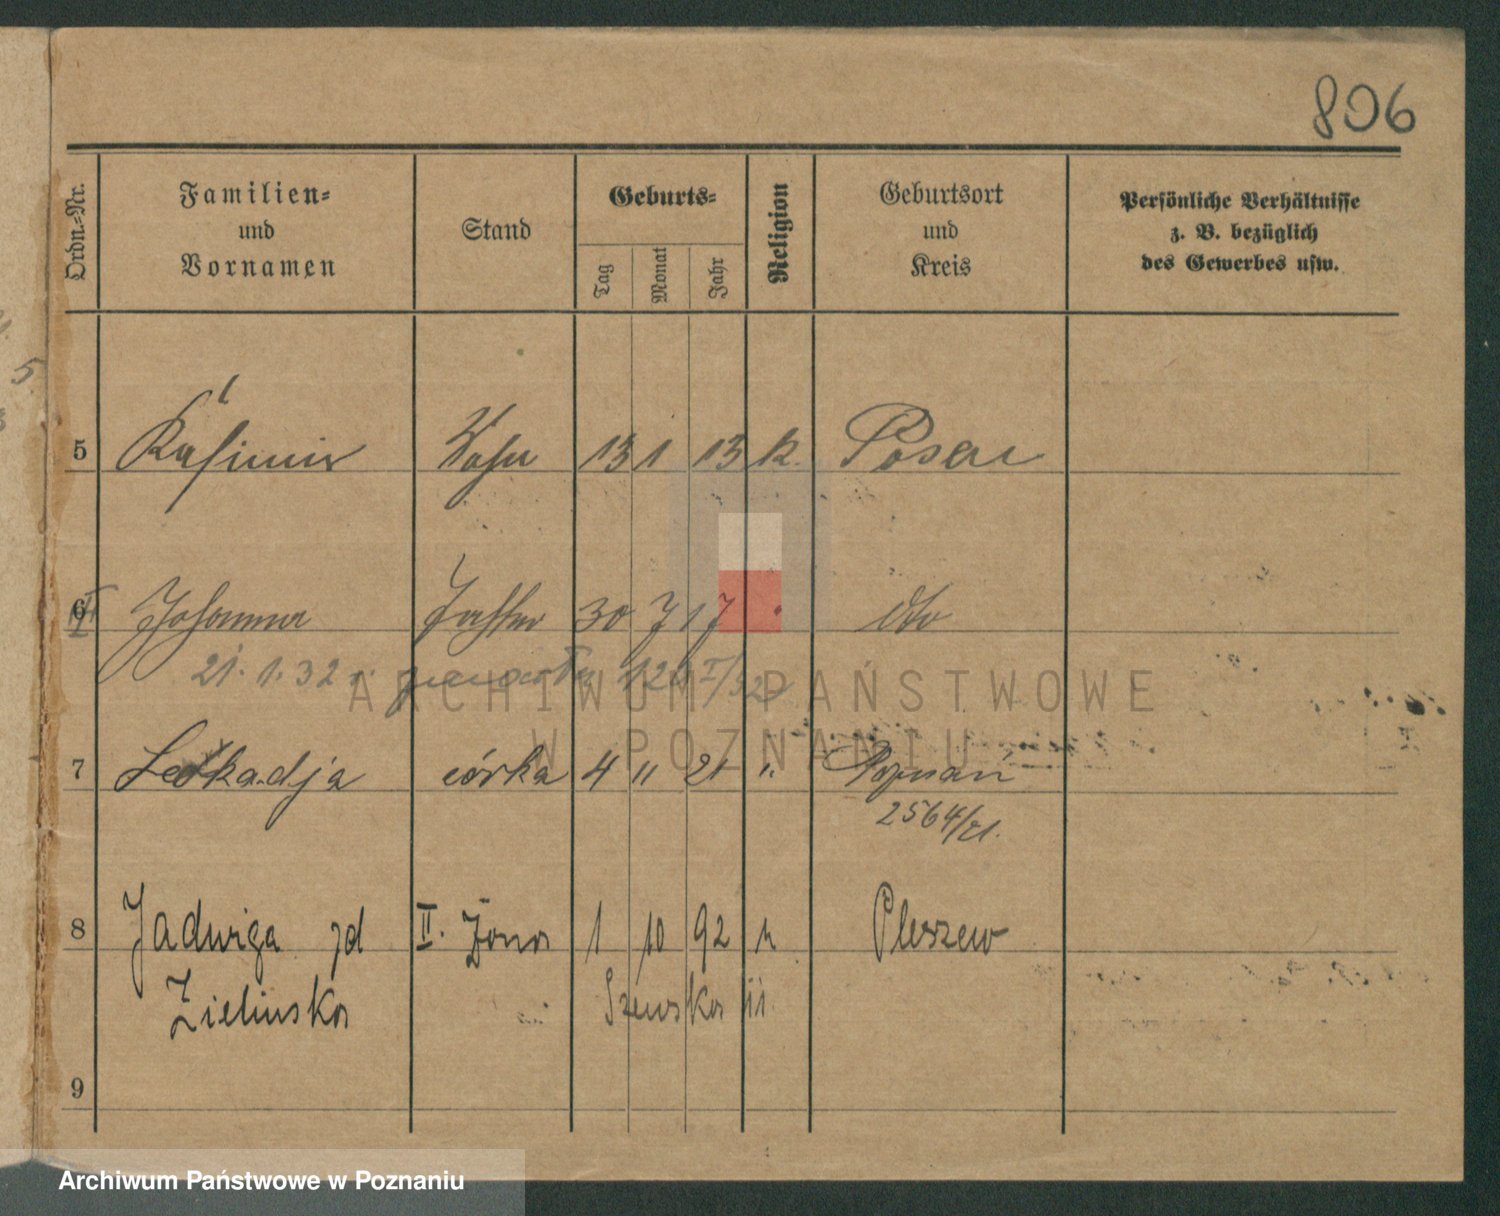 806
Ordn.=Nr.
Familien=
und
Vornamen
Stand
Geburts=
Tag
Monat
Jahr
Religion
Geburtsort
und
Kreis
Persönliche Verhältnisse
z. B. bezüglich
des Gewerbes usw.
5 Kasimir Sohn 13 1 13 k. Posen
6 Johanna Tochter 30 7 17 dto
21. 1. 32 r.
7 Leokadja córka 4 11 21 " Poznań
2564/21.
8 Jadwiga zd II. Żona 1 10 92 k Pleszew
Zielinska Szewska 11
9
ARCHIWUM PAŃSTWOWE
W POZNANIU
Archiwum Państwowe w Poznaniu